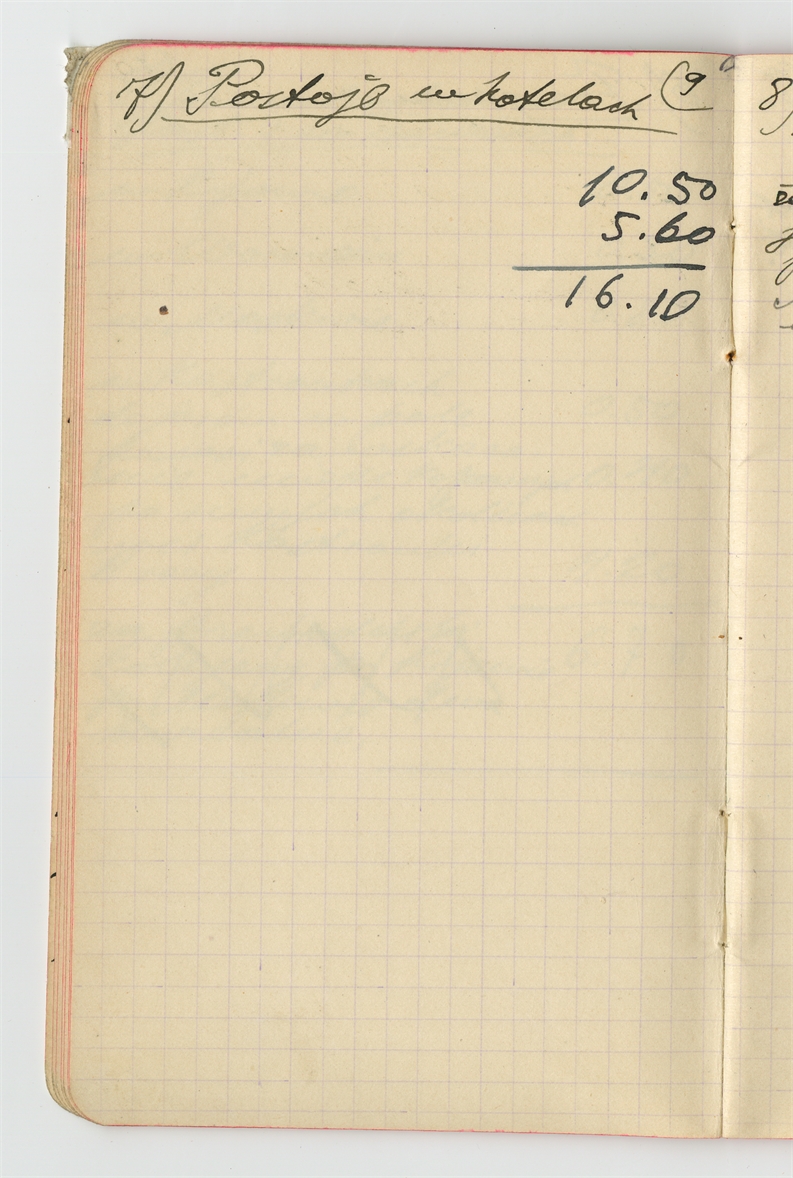 7) Postoje w hotelach (9
10.50
5.60
16.10
8)